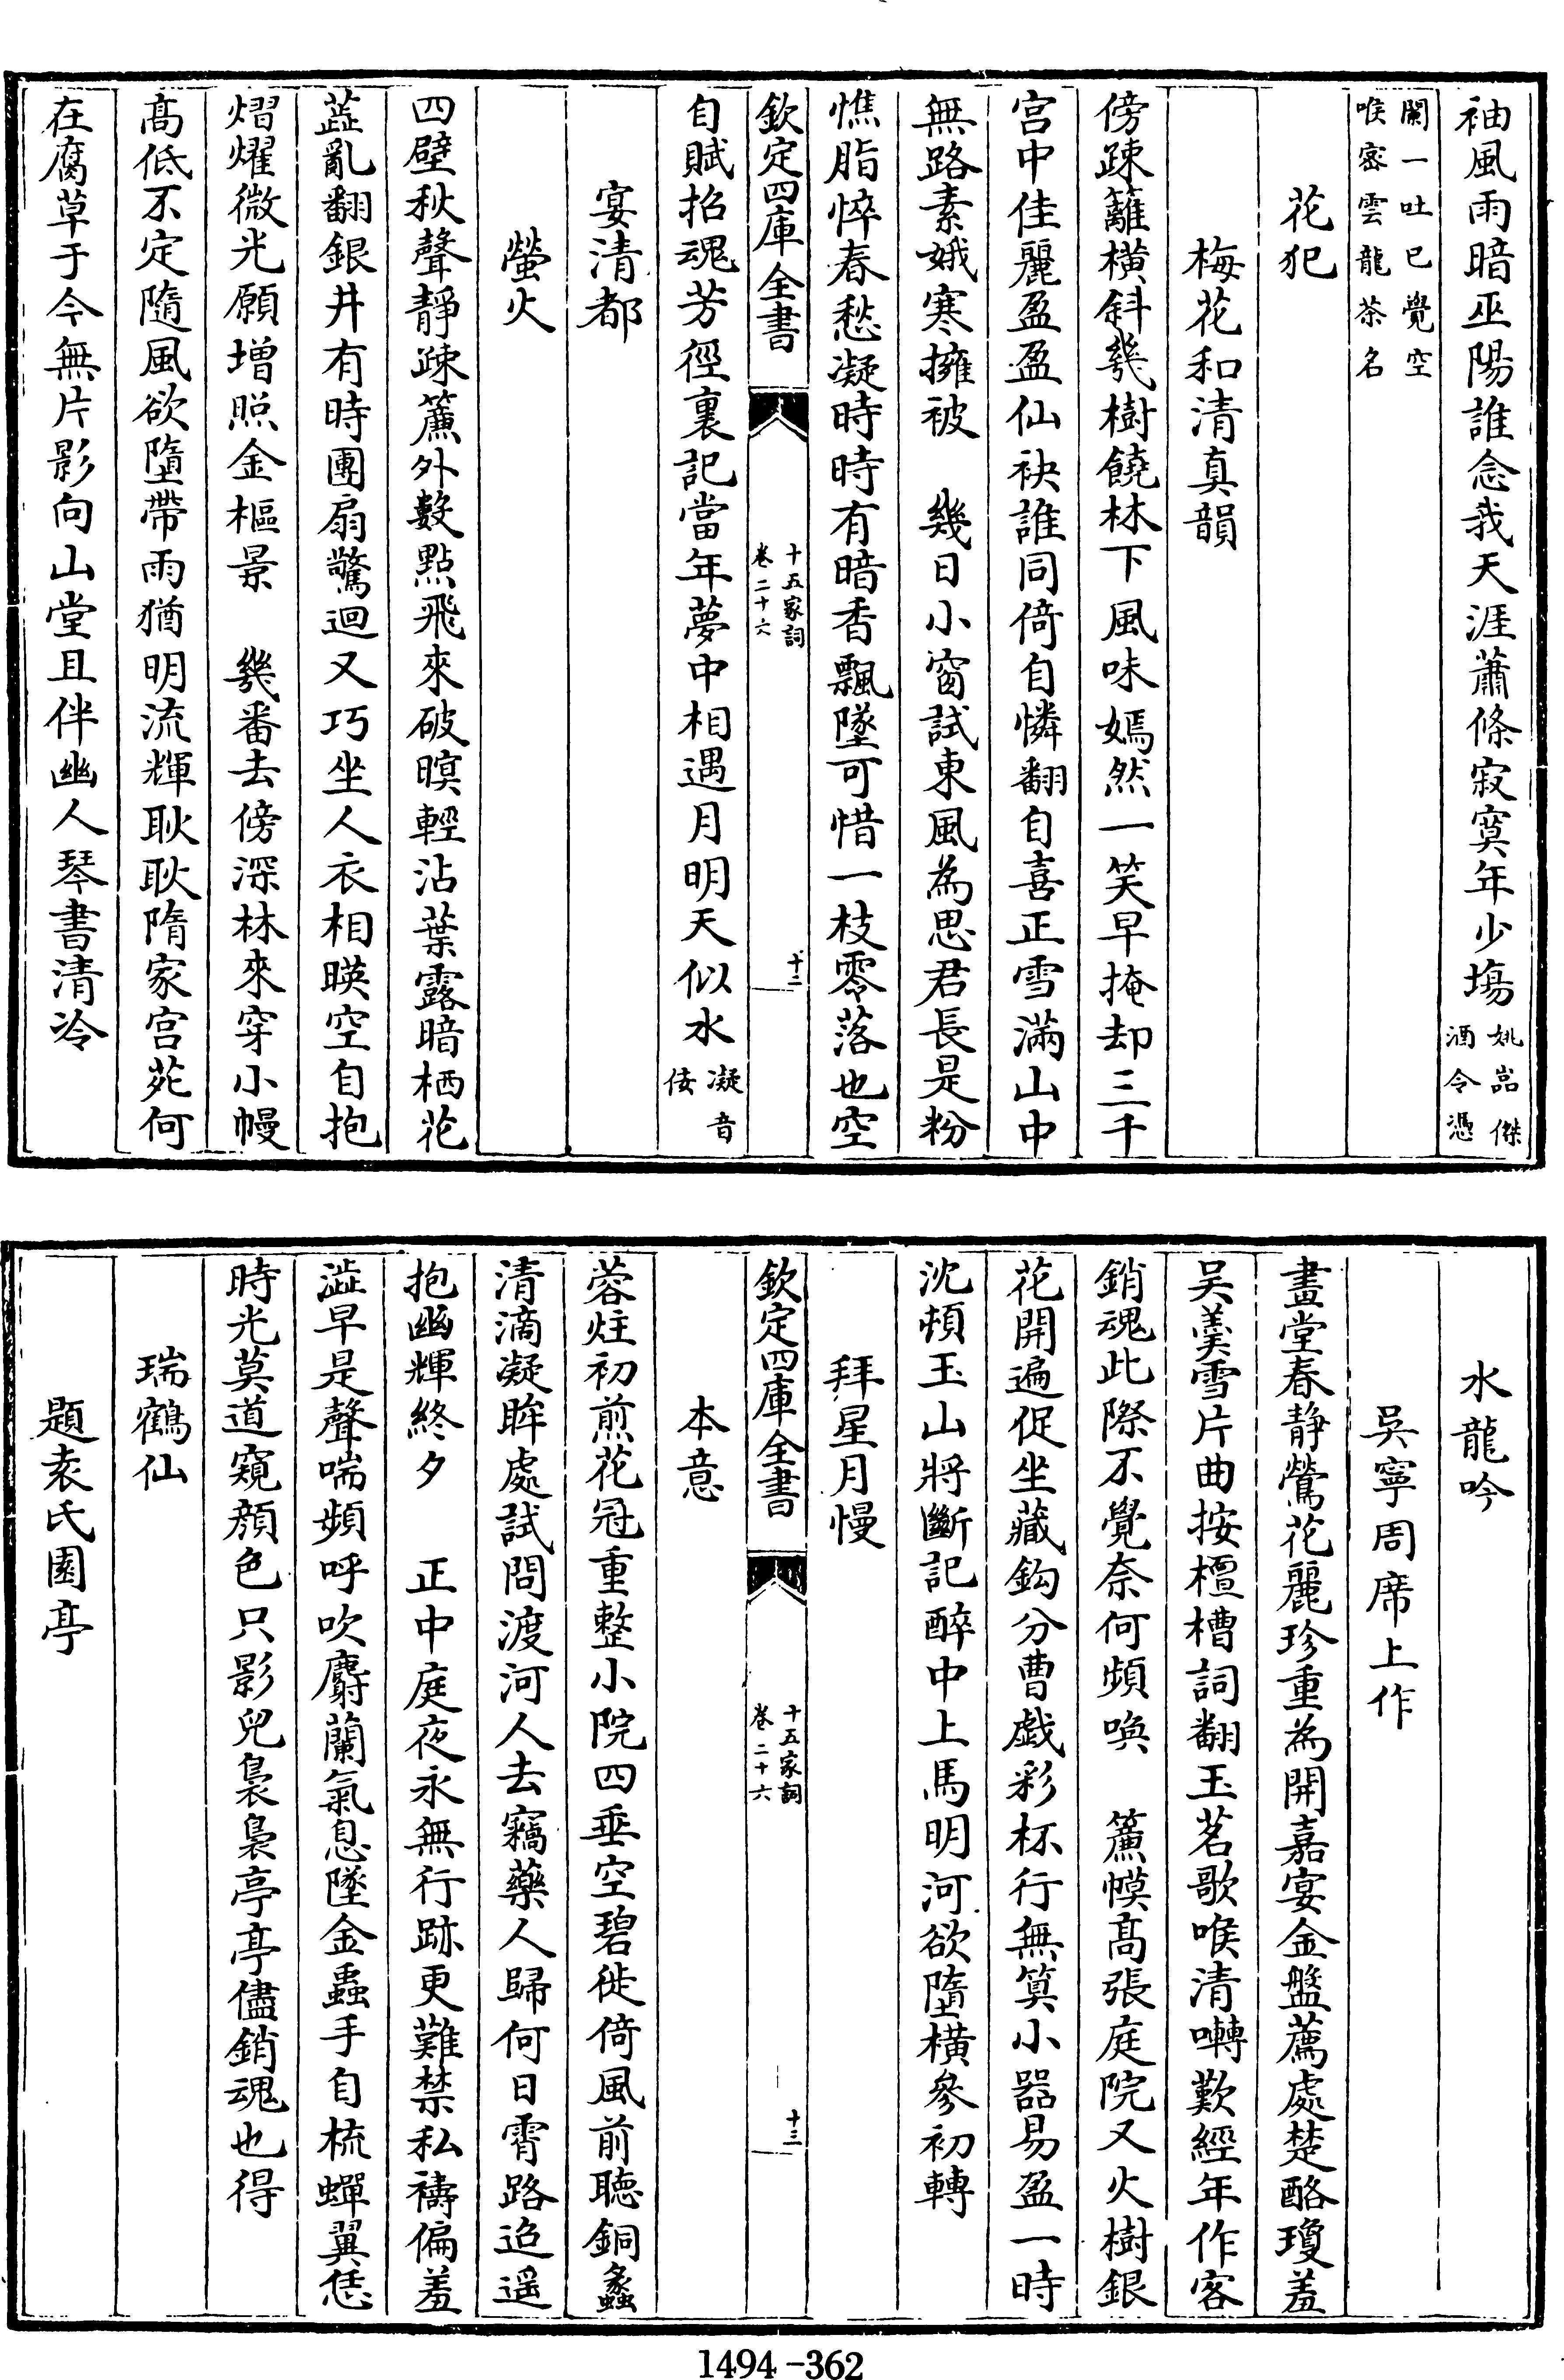 袖風雨暗巫陽誰念我天涯蕭條寂寞年少塲姚嵓傑酒令憑
闌一吐已覺空喉宻雲龍茶名
花犯
梅花和清真韻
傍疎籬橫斜幾樹饒林下風味嫣然一笑早掩却三千
宫中佳麗盈盈仙袂誰同倚自憐翻自喜正雪滿山中
無路素娥寒擁被　幾日小窗試東風為思君長是粉
憔脂悴春愁凝時時有暗香飄墜可惜一枝零落也空
欽定四庫全書
十五家詞
卷二十六
十二
自賦招魂芳徑裏記當年夢中相遇月明天似水凝音佞
宴清都
螢火
四壁秋聲靜疎簾外數點飛來破暝輕沾葉露暗栖花
蕋亂翻銀井有時團扇驚迴又巧坐人衣相暎空自抱
熠燿微光願増照金樞景　幾番去傍深林來穿小幔
髙低不定隨風欲墮帶雨猶明流輝耿耿隋家宫苑何
在腐草于今無片影向山堂且伴幽人琴書清冷
水龍吟
吳寧周席上作
畫堂春静鶯花麗珍重為開嘉宴金盤薦處楚酪瓊羞
吴羮雪片曲按檀槽詞翻玉茗歌喉清囀歎經年作客
銷魂此際不覺奈何頻喚　簾幙髙張庭院又火樹銀
花開遍促坐藏鈎分曹戯彩杯行無筭小噐易盈一時
沈頓玉山將斷記醉中上馬明河欲墮橫參初轉
拜星月慢
欽定四庫全書
十五家詞
卷二十六
十三
本意
蓉炷初煎花冠重整小院四垂空碧徙倚風前聴銅蠡
清滴凝眸處試問渡河人去竊藥人歸何日霄路迢遥
抱幽輝終夕　正中庭夜永無行跡更難禁私禱偏羞
澁早是聲喘頻呼吹麝蘭氣息墜金蟲手自梳蟬翼恁
時光莫道窺顔色只影兒裊裊亭亭儘銷魂也得
瑞鶴仙
題袁氏園亭
1494-362